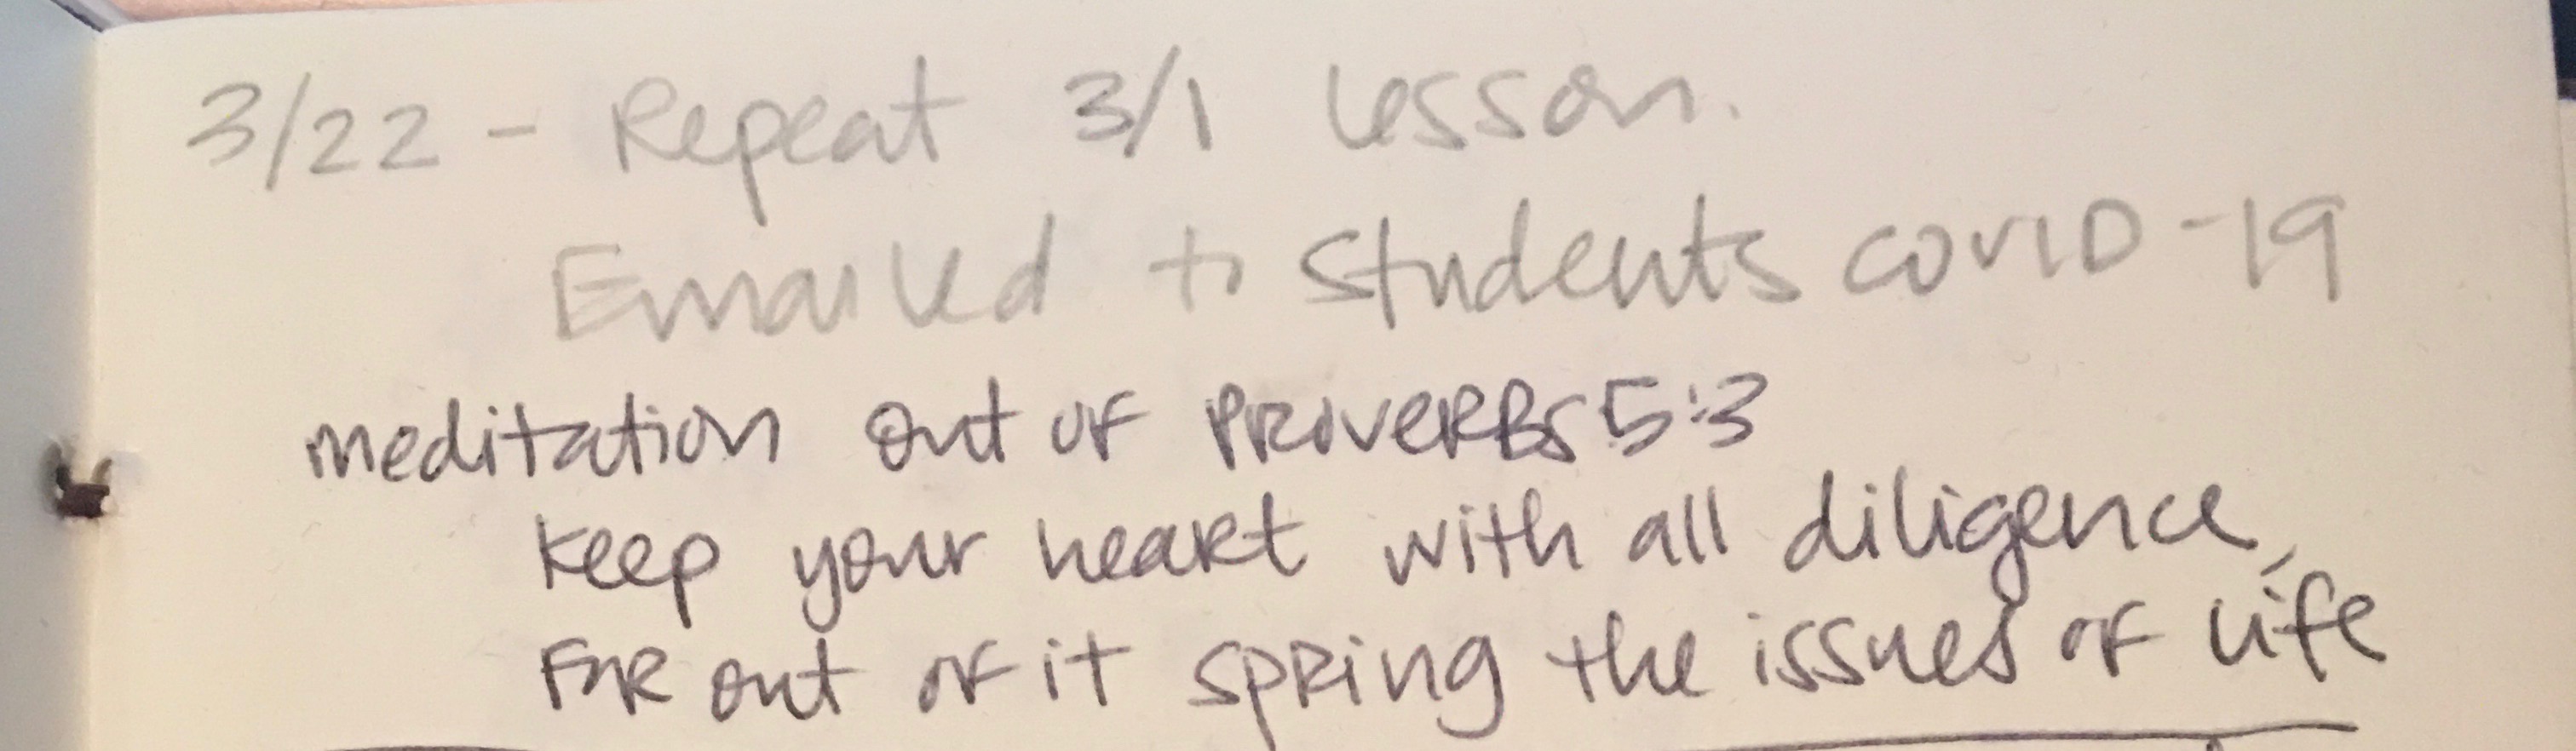 3/22 - Repeat 3/1 lesson.
Emailed to students COVID-19
meditation out of PROVERBS 5:3
Keep your heart with all diligence,
For out of it spring the issues of life